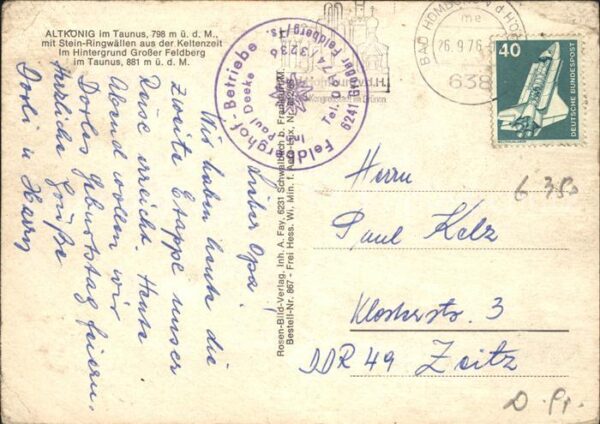 ALTKÖNIG im Taunus, 798 m ü. d. M.,
mit Stein-Ringwällen aus der Keltenzeit
Im Hintergrund Großer Feldberg
im Taunus, 881 m ü. d. M.
Lieber Opa!
Wir haben heute die
zweite Etappe unser
Reise erreicht. Heute
Abend wollen wir
Dorlis Geburtstag feiern.
Herzliche Grüße
Dorli u. Harry
Rosen-Bild-Verlag, Inh. A. Fay, 6231 Schwalbach b. Frankfurt/M.
Bestell-Nr. 867 - Frei Hess. Wi, Min. f.
Feldberghof-Betriebe
Inh. Paul Deeke
Tel. 0 3236
6241 Großer Feldberg/Ts.
BAD HOMBURG V D HÖHE
me
26.9.76
638
40
DEUTSCHE BUNDESPOST
6 350
Herrn
Paul Kelz
Klosterstr. 3
DDR 49 Zeitz
D. Pr.